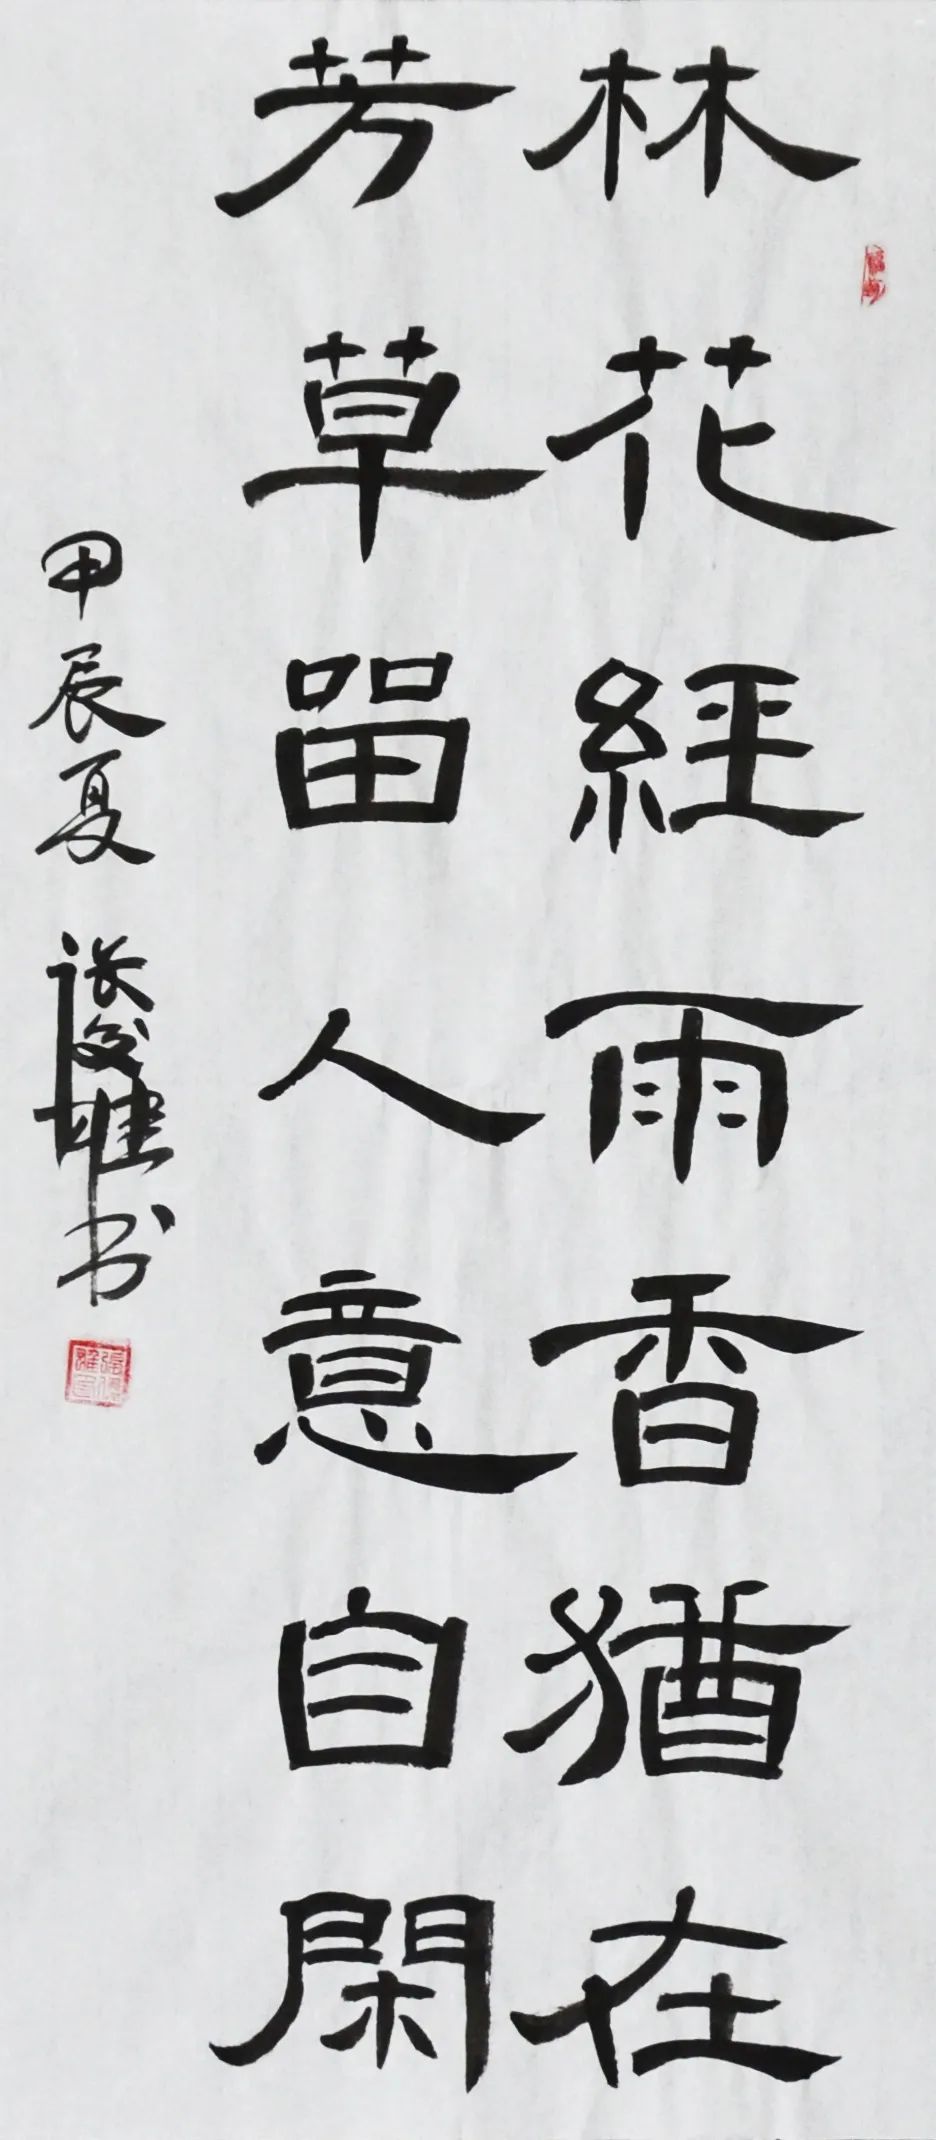 林花經雨香猶在
芳草留人意自閑
甲辰夏 张俊雄书